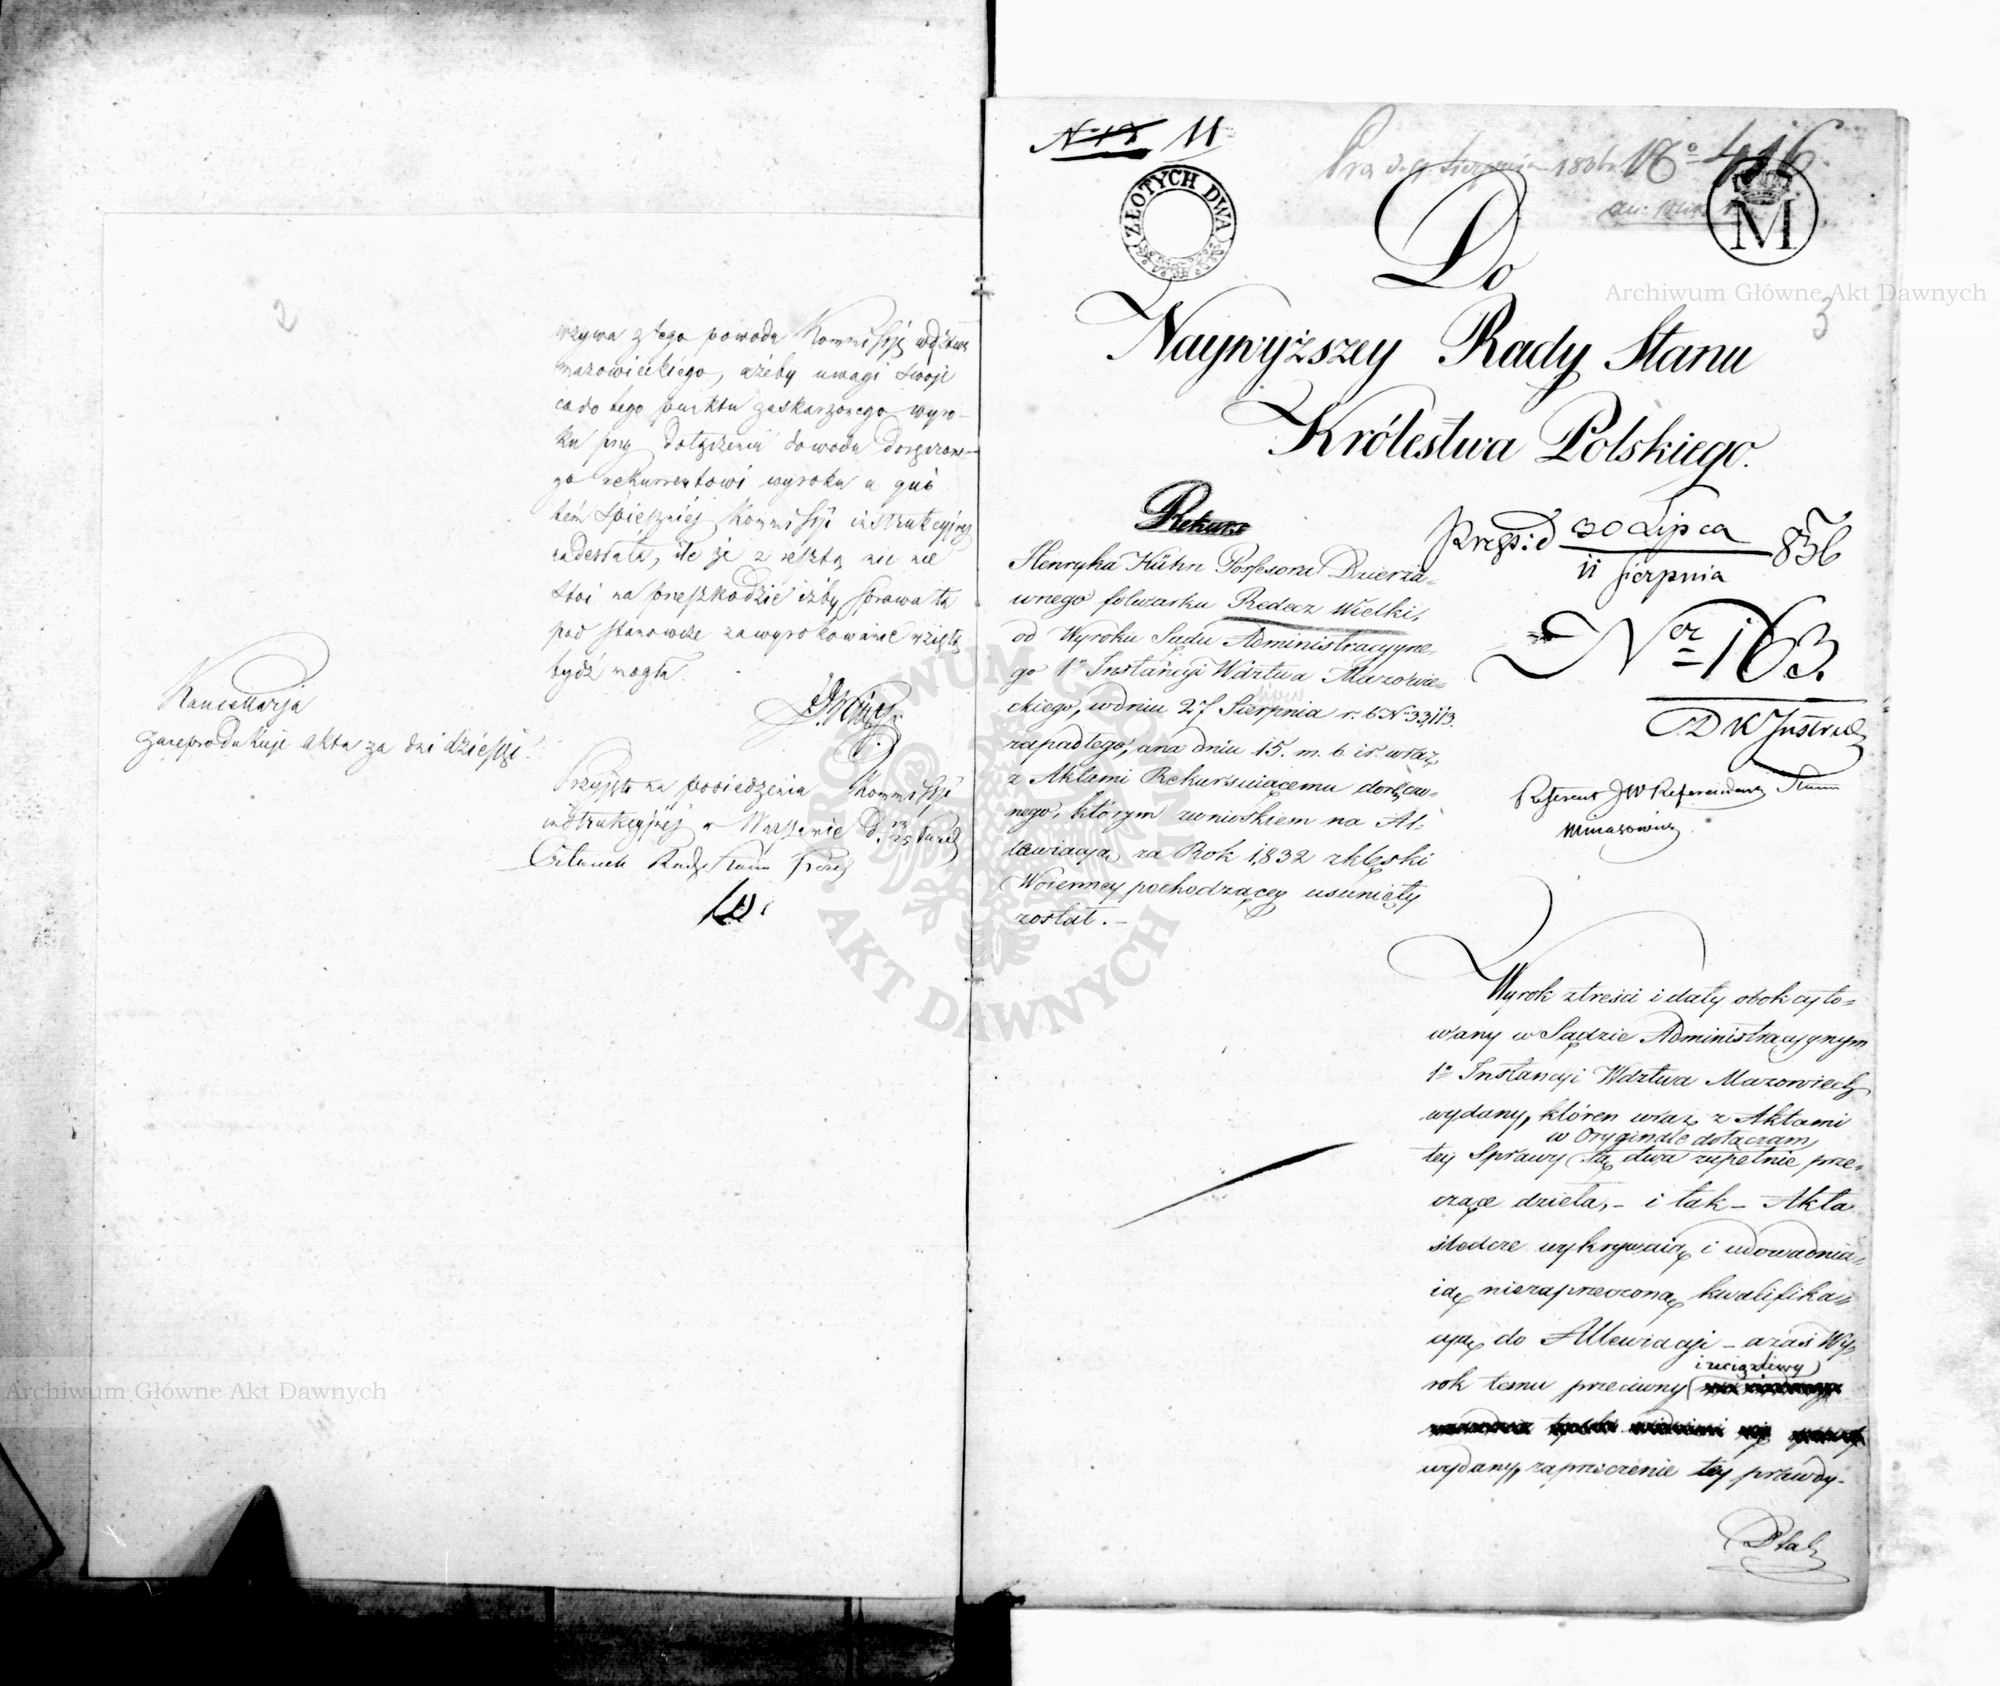 2
wzywa z tego powodu Kommissję wdztwa
mazowieckiego, ażeby uwagi swoje
co do tego punktu zaskarzonego wyro-
ku przy dołączeniu dowodu doręczone-
go rekurrentowi wyroku
tem spieszniej Kommissji instrukcyjnej
nadesłała, ile że z resztą nic nie
stoi na przeszkodzie iżby sprawa ta
pod stanowcze zawyrokowanie wziętą
bydź mogła.
Kancellarja
zareprodukuje akta za dni dziesięć.
Przyjęto na posiedzeniu Kommissji
instrukcyjnej w Warszawie d.
Członek Rady Stanu
N. 12 11
1836 No 416.
ZŁOTYCH DWA
M
3
Do
Naywyższey Rady Stanu
Królestwa Polskiego.
Rekurs
Henryka Kühn Possesora Dzierża-
wnego folwarku Redecz Wielki,
od Wyroku Sądu Administracyyne-
go 1ej Instancyi Wdztwa Mazowie-
ckiego, w dniu 27 Sierpnia r. b. No 33,113.
zapadłego, a na dniu 15. m. b. i r. wraz
z Aktami Rekursuiącemu doręczo-
nego, którym z wnioskiem na Al-
lewiacyą za Rok 1832 z klęski
Woienney pochodzącey usunięty
został.
Preds: d 30 Lipca
11 Sierpnia
836
Nor 163.
D K Instruk
Referent JW Referendarz Stanu
Minasowicz
Wyrok z treści i daty obok cyto-
wany w Sądzie Administracyynym
1ej Instancyi Wdztwa Mazowieck
wydany, któren wraz z Aktami
w Oryginale dołączam,
tey Sprawy są dwa zupełnie prze-
czące dzieła, - i tak - Akta
śledcze wykrywaią i udowadnia-
ią niezaprzeczoną kwalifika-
cyą do Allewiacyi - a zaś Wy-
i uciążliwy
rok temu przeciwny
wydany, zaprzeczenie tey prawdy -
Archiwum Główne Akt Dawnych
Archiwum Główne Akt Dawnych
ARCHIWUM GŁÓWNE AKT DAWNYCH